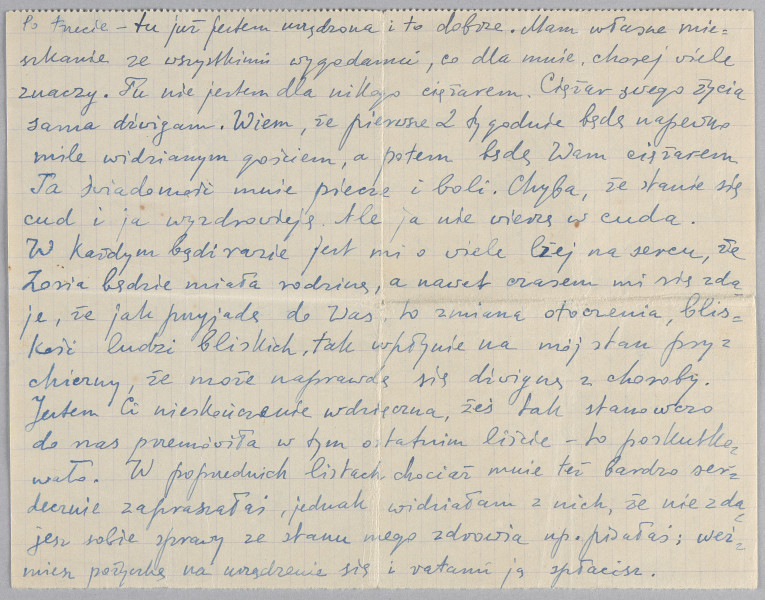 Po trzecie – tu już jestem urządzona i to dobrze. Mam własne mie=
szkanie ze wszystkimi wygodami, co dla mnie, chorej wiele
znaczy. Tu nie jestem dla nikogo ciężarem. Ciężar swego życia
sama dźwigam. Wiem, że pierwsze 2 tygodnie będę napewno
mile widzianym gościem, a potem będę Wam ciężarem
Ta świadomość mnie piecze i boli. Chyba, że stanie się
cud i ja wyzdrowieję. Ale ja nie wierzę w cuda.
W każdym bądź razie jest mi o wiele lżej na sercu, że
Zosia będzie miała rodzinę, a nawet czasem mi się zda
je, że jak przyjadę do Was to zmiana otoczenia, blis=
kość ludzi bliskich, tak wpłynie na mój stan psy=
chiczny, że może naprawdę się dźwignę z choroby.
Jestem Ci nieskończenie wdzięczna, żeś tak stanowczo
do nas przemówiła w tym ostatnim liście – to poskutko=
wało. W poprzednich listach chociaż mnie też bardzo ser=
decznie zapraszałaś, jednak widziałam z nich, że nie zda=
jesz sobie sprawy ze stanu mego zdrowia np. pisałaś; weź=
miesz pożyczkę na urządzenie się i ratami ją spłacisz.